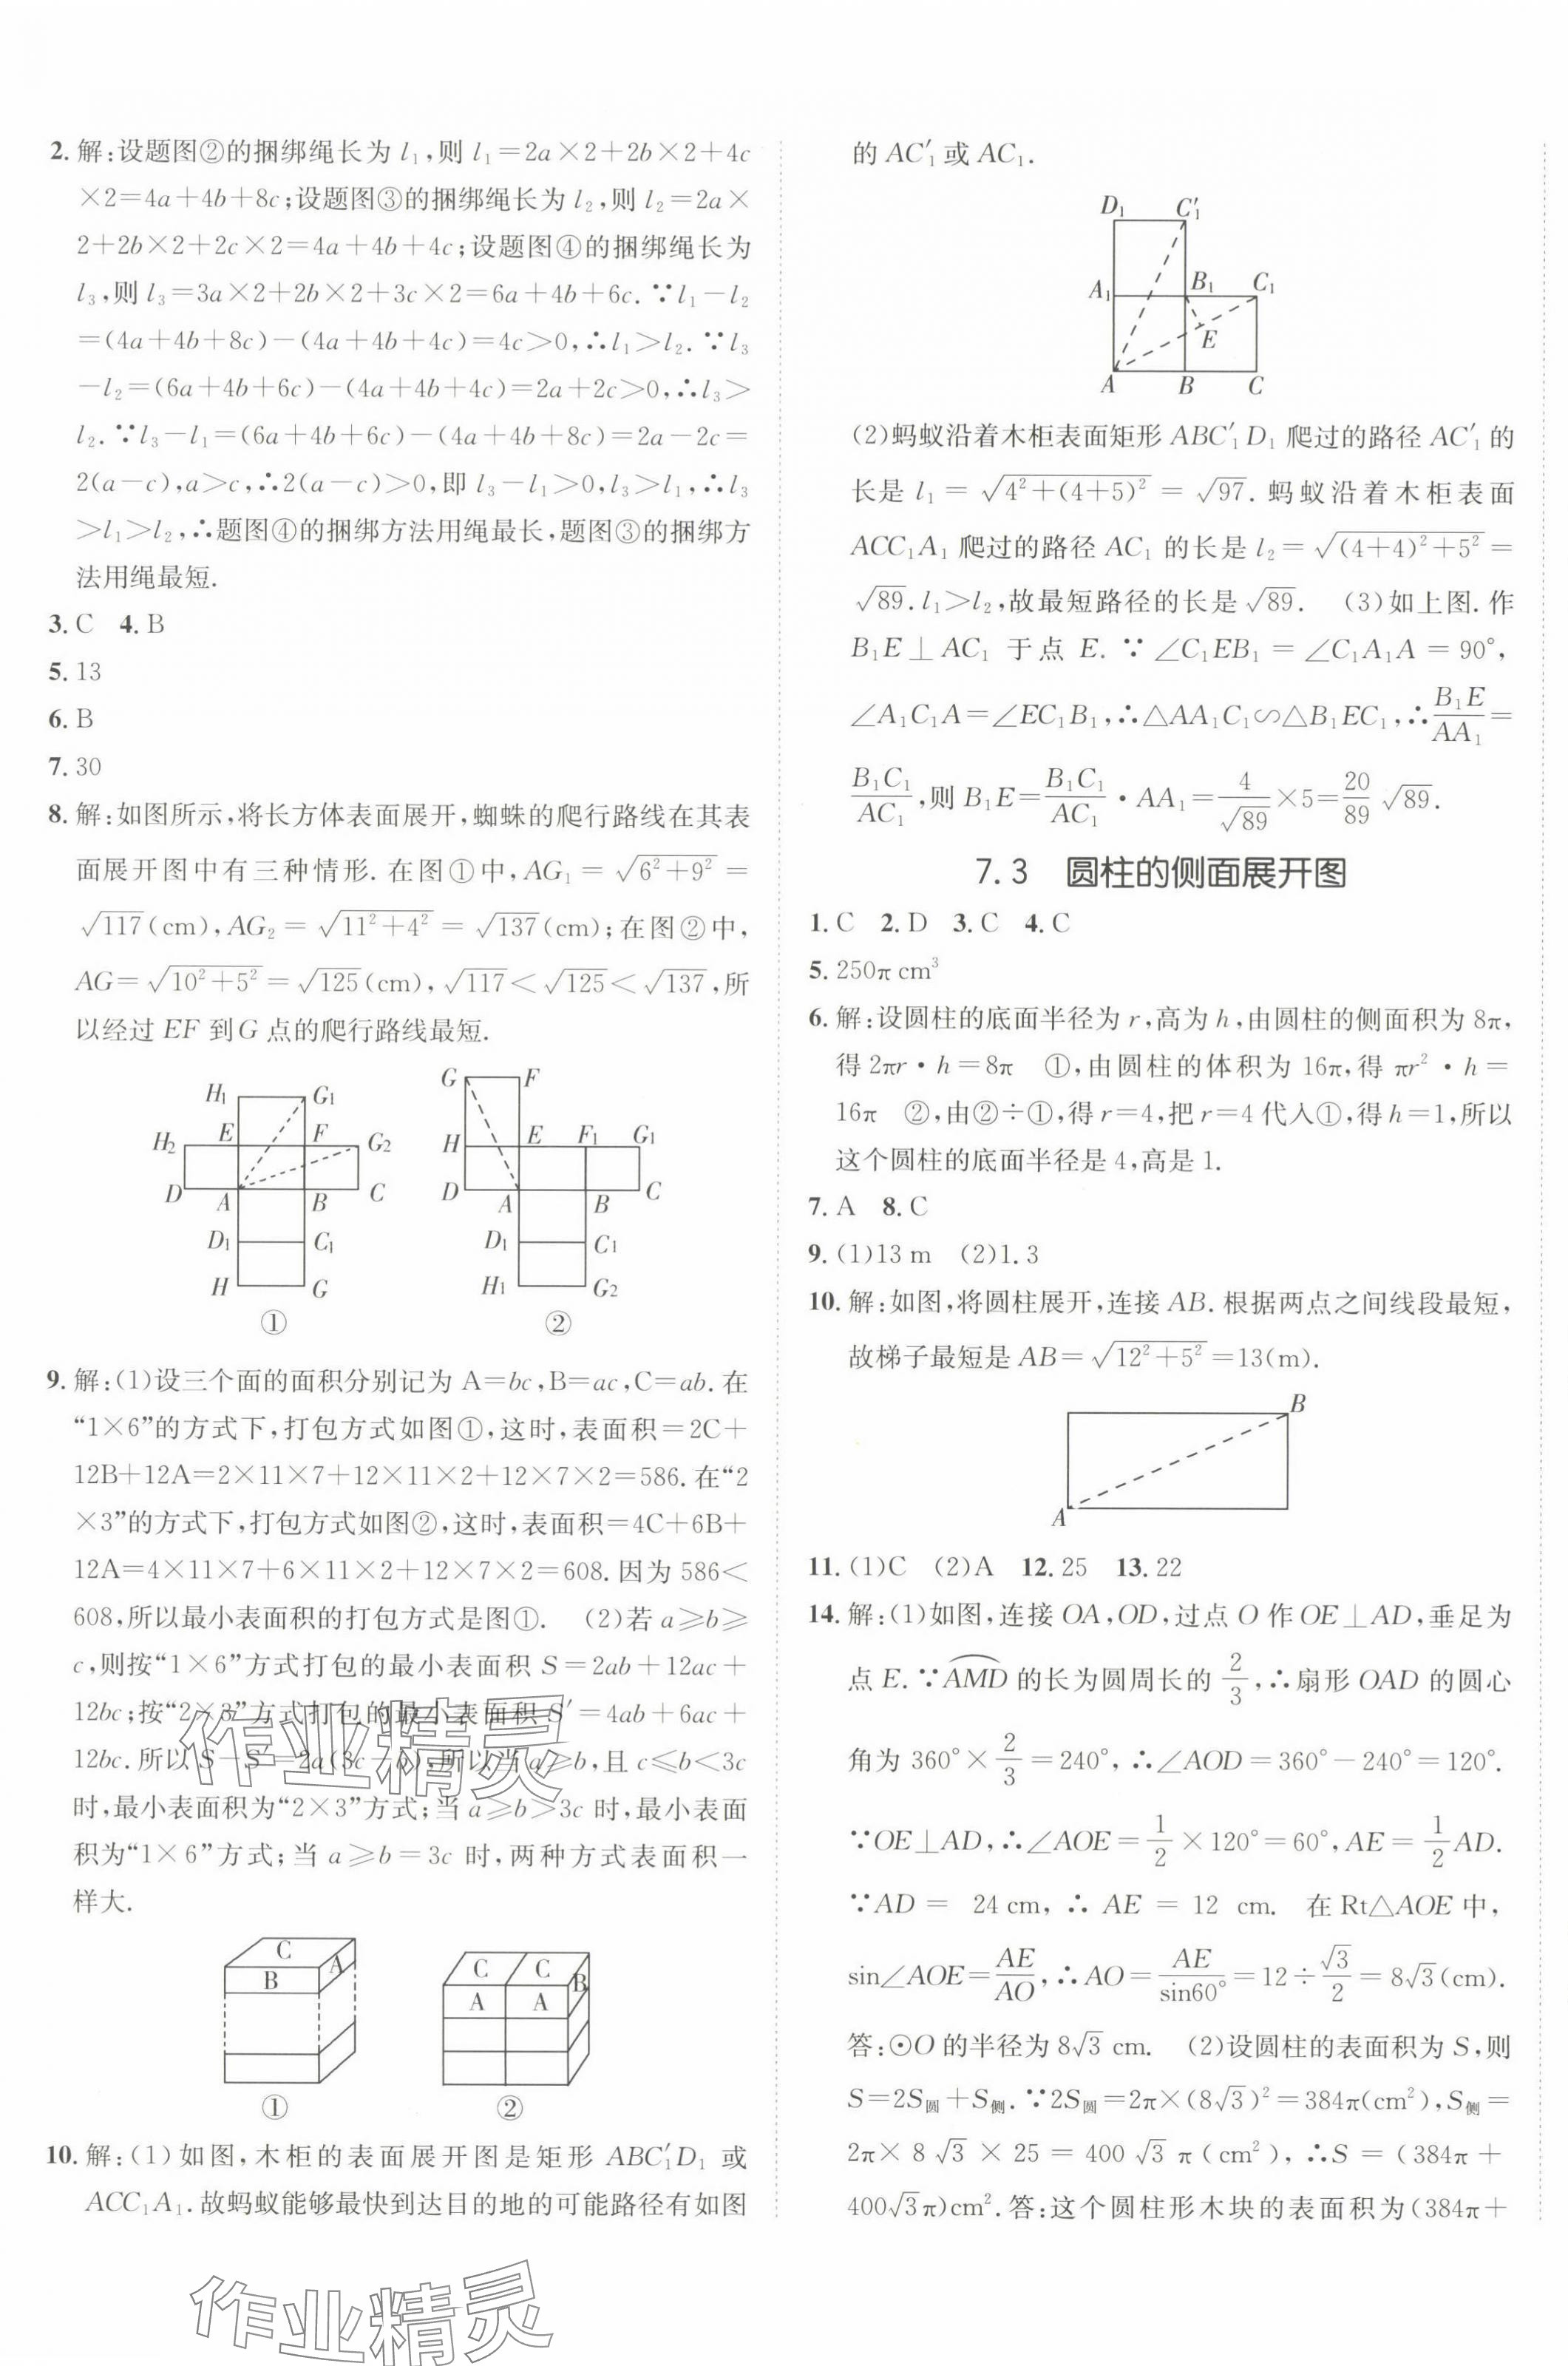 2. 解:设题图②的捆绑绳长为 l₁,则 l₁=2a×2+2b×2+4c
×2=4a+4b+8c;设题图③的捆绑绳长为 l₂,则 l₂=2a×
2+2b×2+2c×2=4a+4b+4c;设题图④的捆绑绳长为
l₃,则 l₃=3a×2+2b×2+3c×2=6a+4b+6c.∵l₁-l₂
=(4a+4b+8c)-(4a+4b+4c)=4c>0,∴l₁>l₂.∵l₃
-l₂=(6a+4b+6c)-(4a+4b+4c)=2a+2c>0,∴l₃>
l₂.∵l₃-l₁=(6a+4b+6c)-(4a+4b+8c)=2a-2c=
2(a-c),a>c,∴2(a-c)>0,即 l₃-l₁>0,l₃>l₁,∴l₃
>l₁>l₂,∴题图④的捆绑方法用绳最长,题图③的捆绑方
法用绳最短.
3. C 4. B
5. 13
6. B
7. 30
8. 解:如图所示,将长方体表面展开,蜘蛛的爬行路线在其表
面展开图中有三种情形.在图①中,AG₁=√(6²+9²)=
√117(cm),AG₂=√(11²+4²)=√137(cm);在图②中,
AG=√(10²+5²)=√125(cm),√117<√125<√137,所
以经过 EF 到 G 点的爬行路线最短.
H₁ G₁
E F
H₂ G₂
D A B C
D₁ C₁
H G
①
G F
H E F₁ G₁
D A B C
D₁ C₁
H₁ G₂
②
9. 解:(1)设三个面的面积分别记为 A=bc,B=ac,C=ab.在
“1×6”的方式下,打包方式如图①,这时,表面积=2C+
12B+12A=2×11×7+12×11×2+12×7×2=586.在“2
×3”的方式下,打包方式如图②,这时,表面积=4C+6B+
12A=4×11×7+6×11×2+12×7×2=608.因为 586<
608,所以最小表面积的打包方式是图①. (2)若 a≥b≥
c,则按“1×6”方式打包的最小表面积 S=2ab+12ac+
12bc;按“2×3”方式打包的最小表面积 S′=4ab+6ac+
12bc.所以 S-S′=2a(3c-b),所以当 a≥b,且 c≤b<3c
时,最小表面积为“2×3”方式;当 a≥b>3c 时,最小表面
积为“1×6”方式;当 a≥b=3c 时,两种方式表面积一
样大.
C
B A
①
C C
A A B
②
10. 解:(1)如图,木柜的表面展开图是矩形 ABC′₁D₁ 或
ACC₁A₁.故蚂蚁能够最快到达目的地的可能路径有如图
的 AC′₁ 或 AC₁.
D₁ C′₁
A₁ B₁ C₁
E
A B C
(2)蚂蚁沿着木柜表面矩形 ABC′₁D₁ 爬过的路径 AC′₁ 的
长是 l₁=√(4²+(4+5)²)=√97.蚂蚁沿着木柜表面
ACC₁A₁ 爬过的路径 AC₁ 的长是 l₂=√((4+4)²+5²)=
√89.l₁>l₂,故最短路径的长是√89. (3)如上图.作
B₁E⊥AC₁ 于点 E.∵∠C₁EB₁=∠C₁A₁A=90°,
∠A₁C₁A=∠EC₁B₁,∴△AA₁C₁∽△B₁EC₁,∴B₁E/AA₁=
B₁C₁/AC₁,则 B₁E=B₁C₁/AC₁·AA₁=4/√89×5=20/89√89.
7.3 圆柱的侧面展开图
1. C 2. D 3. C 4. C
5. 250π cm³
6. 解:设圆柱的底面半径为 r,高为 h,由圆柱的侧面积为 8π,
得 2πr·h=8π ①,由圆柱的体积为 16π,得 πr²·h=
16π ②,由②÷①,得 r=4,把 r=4 代入①,得 h=1,所以
这个圆柱的底面半径是 4,高是 1.
7. A 8. C
9. (1)13 m (2)1.3
10. 解:如图,将圆柱展开,连接 AB.根据两点之间线段最短,
故梯子最短是 AB=√(12²+5²)=13(m).
B
A
11. (1)C (2)A 12. 25 13. 22
14. 解:(1)如图,连接 OA,OD,过点 O 作 OE⊥AD,垂足为
点 E.∵⌒AMD 的长为圆周长的 2/3,∴扇形 OAD 的圆心
角为 360°×2/3=240°,∴∠AOD=360°-240°=120°.
∵OE⊥AD,∴∠AOE=1/2×120°=60°,AE=1/2AD.
∵AD= 24 cm,∴ AE = 12 cm. 在 Rt△AOE 中,
sin∠AOE=AE/AO,∴AO=AE/sin60°=12÷√3/2=8√3(cm).
答:⊙O 的半径为 8√3 cm. (2)设圆柱的表面积为 S,则
S=2S圆+S侧.∵2S圆=2π×(8√3)²=384π(cm²),S侧=
2π×8√3×25=400√3π(cm²),∴S=(384π+
400√3π)cm².答:这个圆柱形木块的表面积为(384π+
作业精灵
作业精灵